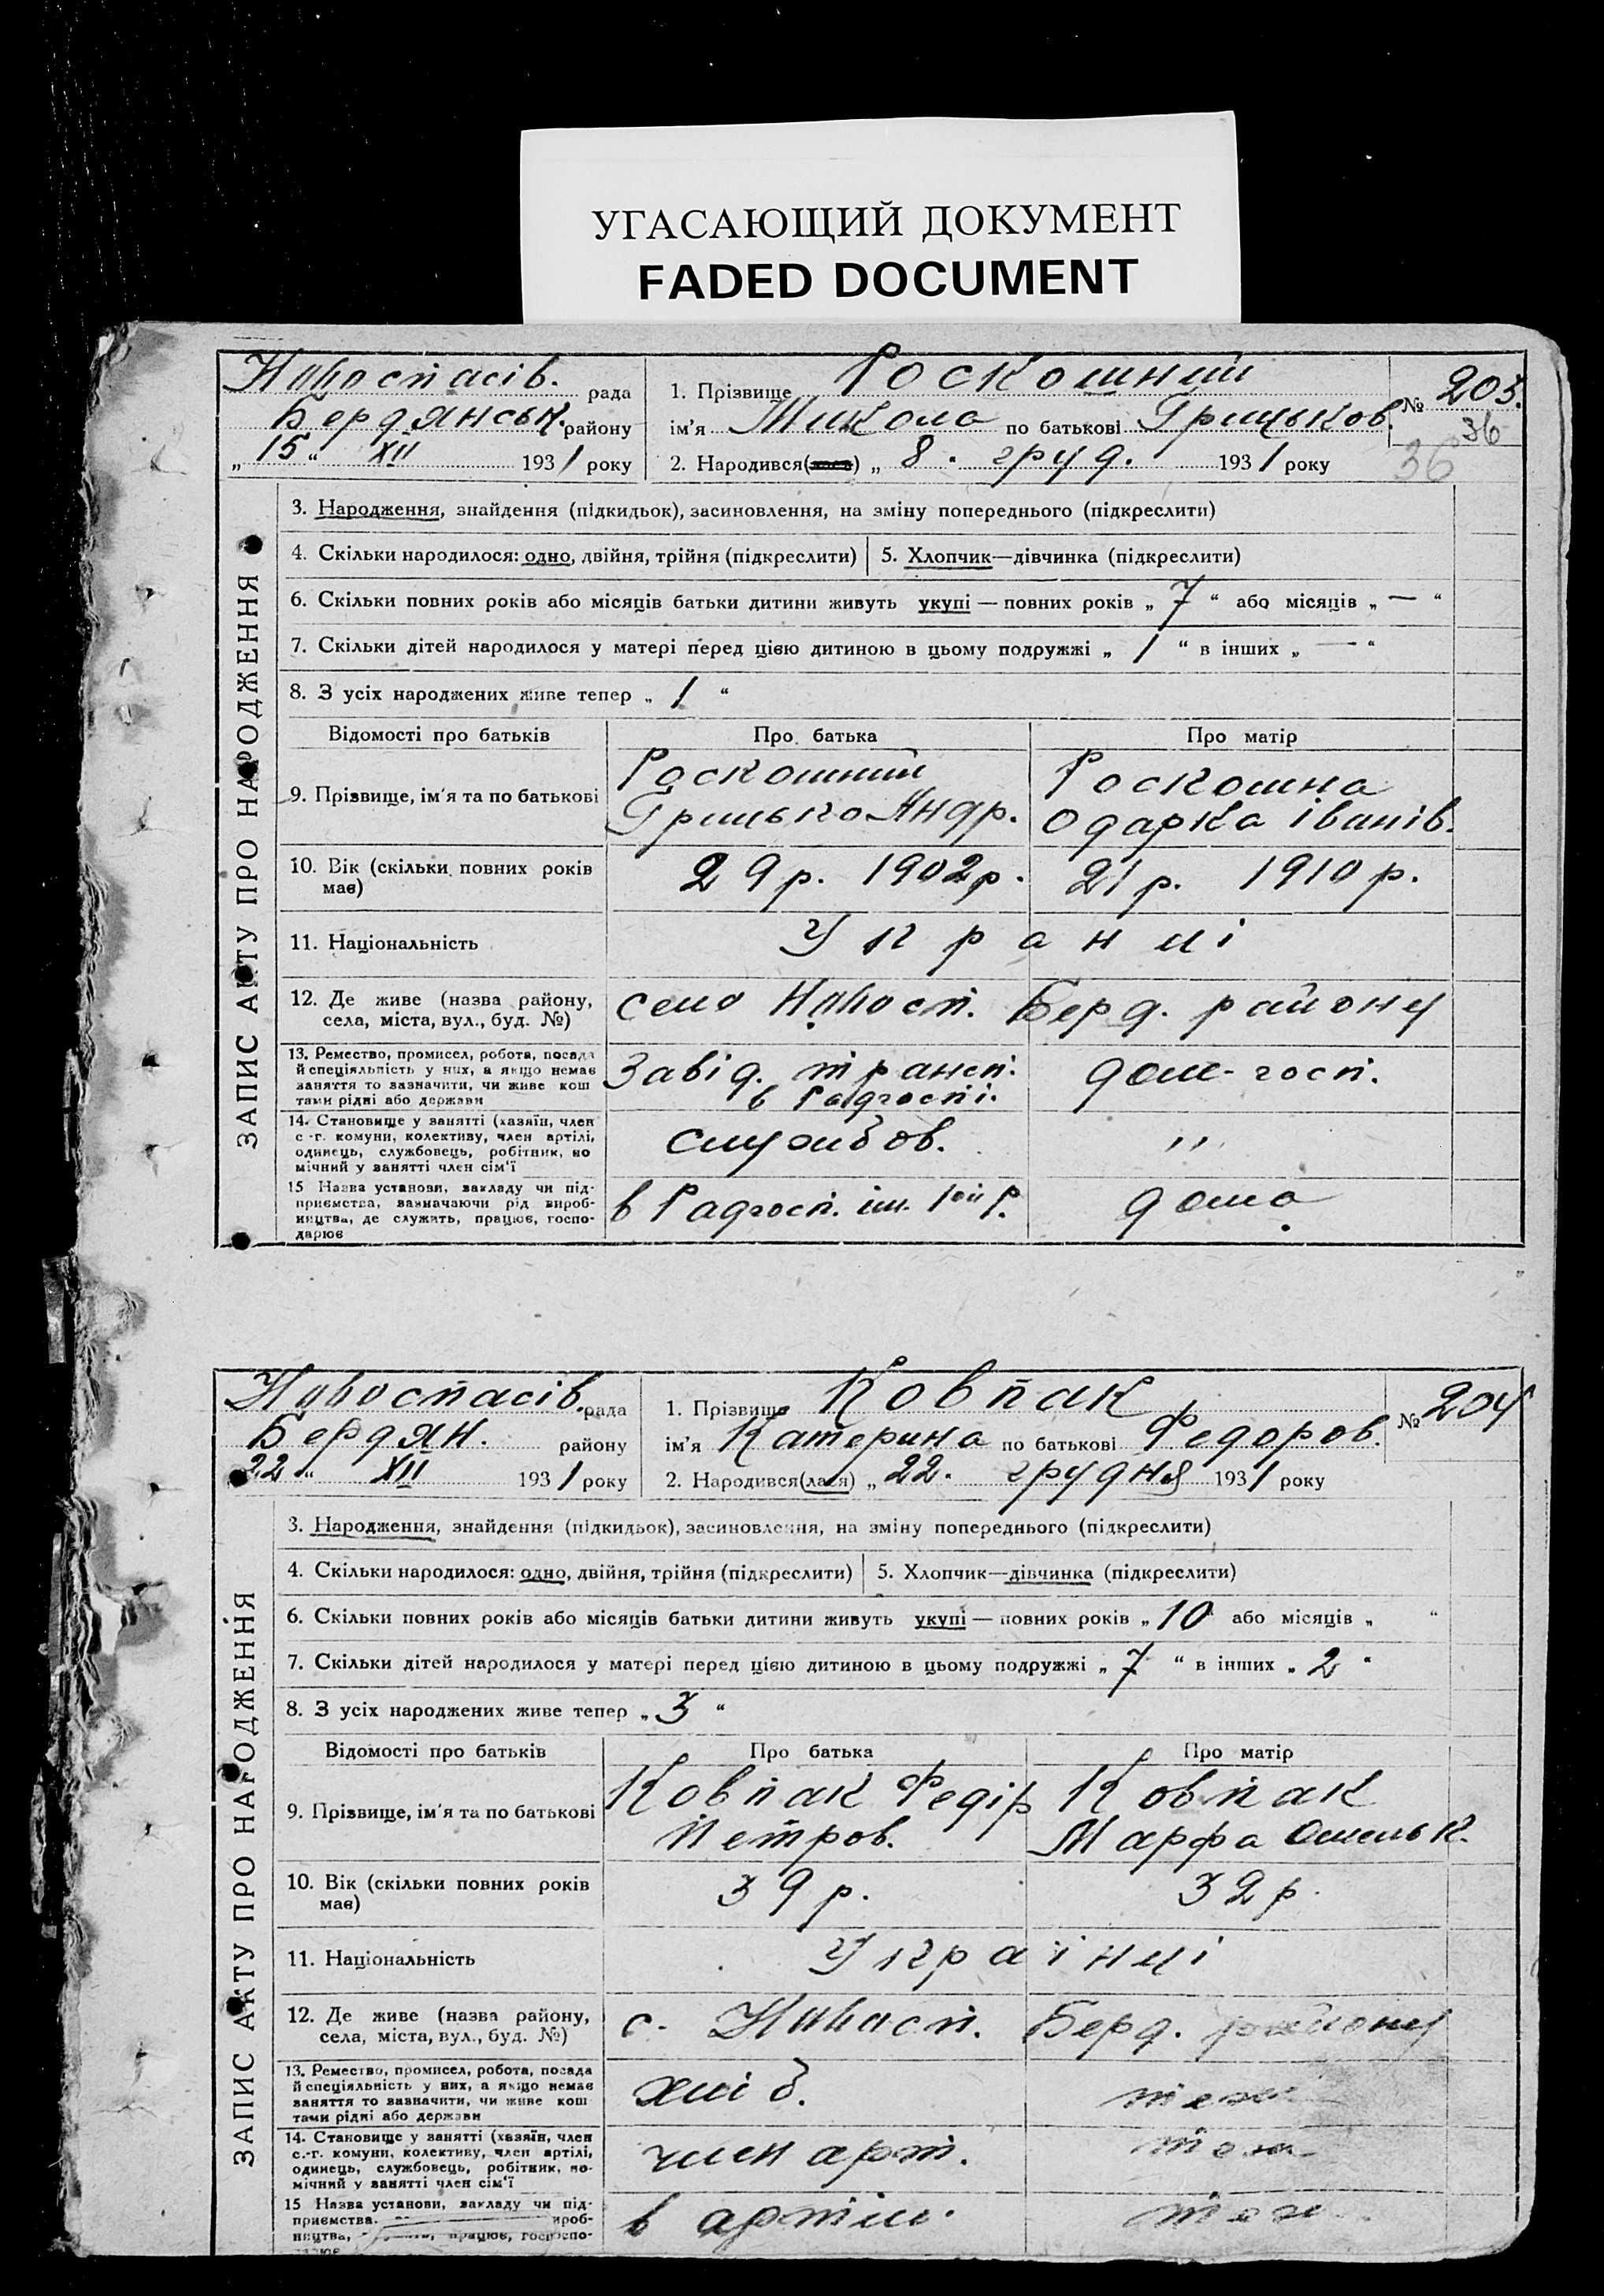 УГАСАЮЩИЙ ДОКУМЕНТ
FADED DOCUMENT
ЗАПИС АКТУ ПРО НАРОДЖЕННЯ
Новоспасів. рада
Бердянськ. району
„ 15 “ XII 1931 року
1. Прізвище Роскошний
ім'я Микола по батькові Грицьков.
2. Народився(лася) „ 8. груд. 1931 року
№ 203.
36
36
3. Народження, знайдення (підкидьок), засиновлення, на зміну попереднього (підкреслити)
4. Скільки народилося: одно, двійня, трійня (підкреслити) 5. Хлопчик—дівчинка (підкреслити)
6. Скільки повних років або місяців батьки дитини живуть укупі — повних років „ 7 “ або місяців „ — “
7. Скільки дітей народилося у матері перед цією дитиною в цьому подружжі „ 1 “ в інших „ — “
8. З усіх народжених живе тепер „ 1 “
Відомості про батьків Про батька Про матір
9. Прізвище, ім'я та по батькові
Роскошний
Грицько Андр.
Роскошна
Одарка Іванів.
10. Вік (скільки повних років
має)
29 р. 1902 р. 21 р. 1910 р.
11. Національність Укранці
12. Де живе (назва району,
села, міста, вул., буд. №)
село Новосп. Берд. району
13. Ремество, промисел, робота, посада
й спеціяльність у них, а якщо немає
заняття то зазначити, чи живе кош
тами рідні або держави
Завід. трансп.
в Радгоспі.
дом-госп.
14. Становище у занятті (хазяїн, член
с-г. комуни, колективу, член артілі,
одинець, службовець, робітник, по
мічний у занятті член сім'ї
службов. ״
15 Назва установи, закладу чи під-
приємства, зазначаючи рід вироб-
ництва, де служить, працює, госпо-
дарює
в Радгосп. ім. 1ої Р. дома
ЗАПИС АКТУ ПРО НАРОДЖЕННЯ
Новоспасів. рада
Бердян. району
22 “ XII 1931 року
1. Прізвище Ковпак
ім'я Катерина по батькові Федоров.
2. Народився(лася) „ 22. грудня 1931 року
№ 204
3. Народження, знайдення (підкидьок), засиновлення, на зміну попереднього (підкреслити)
4. Скільки народилося: одно, двійня, трійня (підкреслити) 5. Хлопчик—дівчинка (підкреслити)
6. Скільки повних років або місяців батьки дитини живуть укупі — повних років „ 10 “ або місяців „ “
7. Скільки дітей народилося у матері перед цією дитиною в цьому подружжі „ 7 “ в інших „ 2 “
8. З усіх народжених живе тепер „ 3 “
Відомості про батьків Про батька Про матір
9. Прізвище, ім'я та по батькові
Ковпак Федір
Петров.
Ковпак
Марфа Омельк.
10. Вік (скільки повних років
має)
39 р. 32 р.
11. Національність Українці
12. Де живе (назва району,
села, міста, вул., буд. №)
с. Новосп. Берд. району
13. Ремество, промисел, робота, посада
й спеціяльність у них, а якщо немає
заняття то зазначити, чи живе кош
тами рідні або держави
хліб. теж
14. Становище у занятті (хазяїн, член
с.-г. комуни, колективу, член артілі,
одинець, службовець, робітник, по-
мічний у занятті член сім'ї
член арт. теж
15 Назва установи, закладу чи під-
приємства, вироб-
ництва, працює, госпо-
в артіл. теж